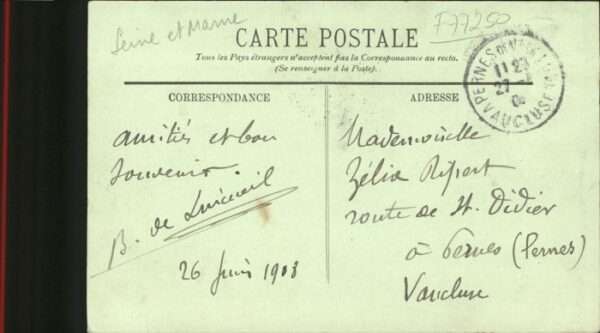 Seine et Marne
F77250
CARTE POSTALE
Tous les Pays étrangers n'acceptent pas la Correspondance au recto.
(Se renseigner à la Poste).
CORRESPONDANCE
amitiés et bon
souvenir
B. de
26 Juin 1908
ADRESSE
Mademoiselle
Zélia Ripert
route de St. Didier
à Pernes (Pernes)
Vaucluse
PERNES
VAUCLUSE